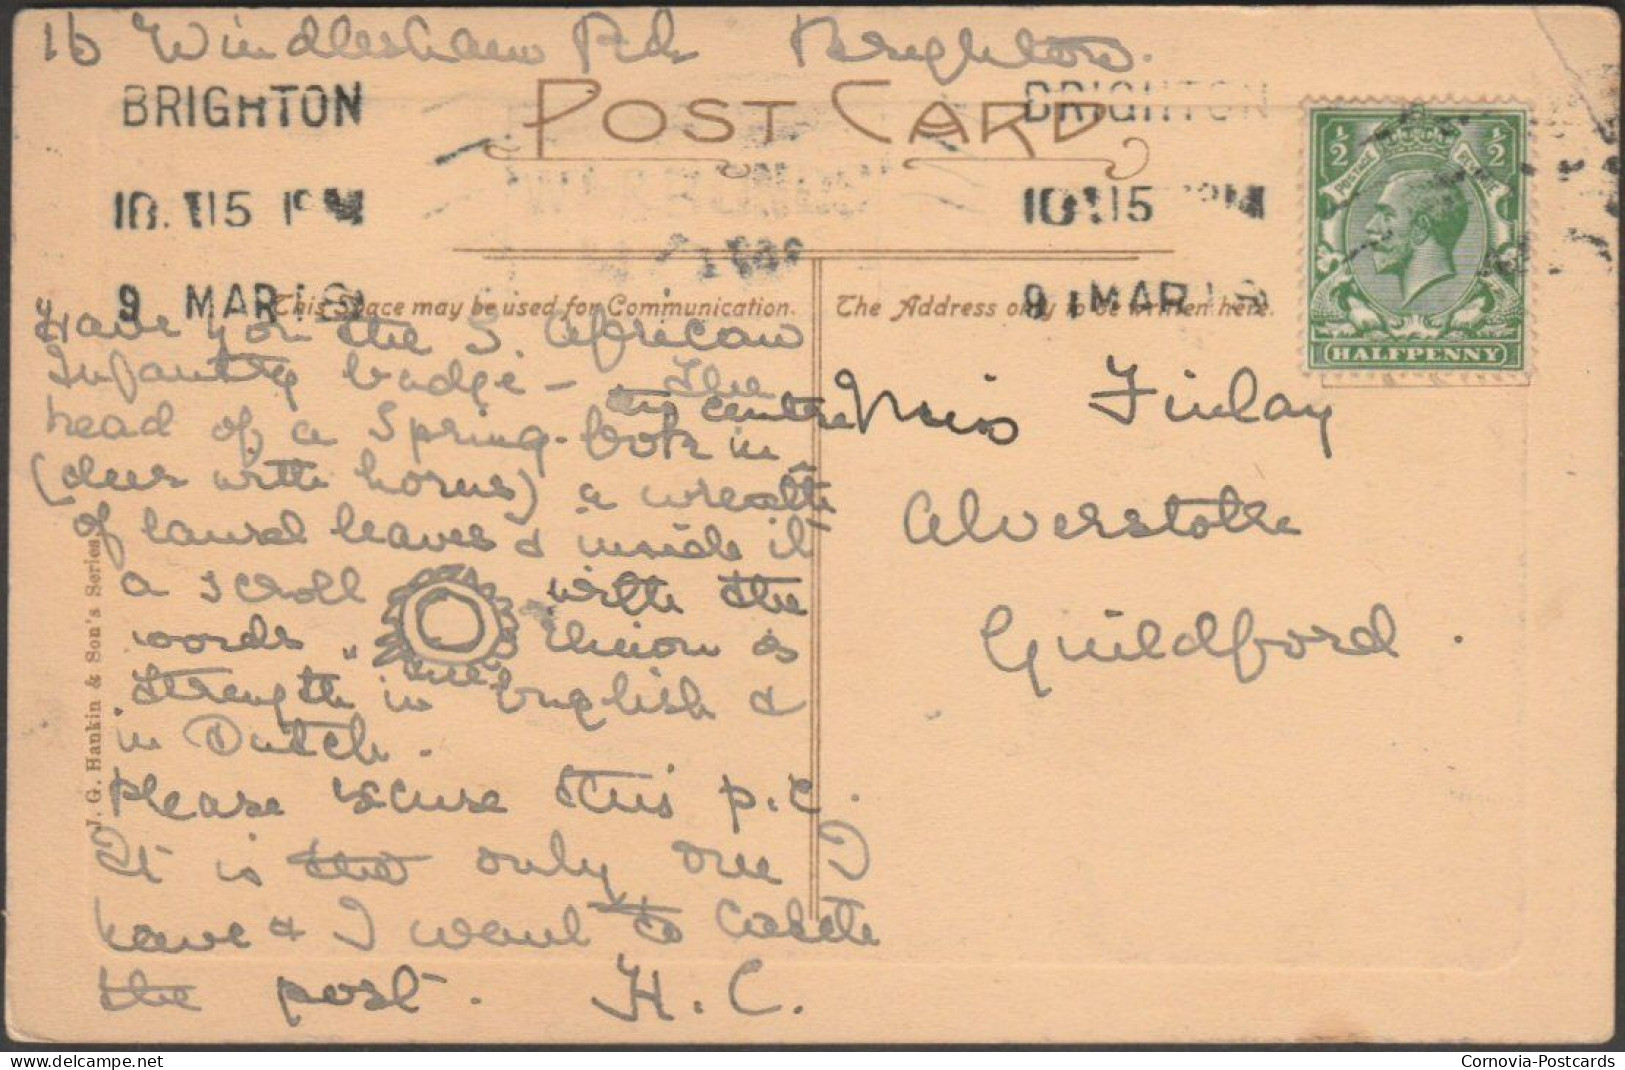 16 Windlesham Rd Brighton.
POST CARD
BRIGHTON
BRIGHTON
10. 15 PM
10 15 PM
9 MAR 18
9 MAR 18
½ ½
POSTAGE REVENUE
HALFPENNY
This Space may be used for Communication.
The Address only to be written here.
Have you the S. African
Infantry badge – The
head of a Spring-bok in the centre
(deer with horns) a wreath
of laurel leaves & inside it
a scroll with the
words "Union is
strength" in English &
in Dutch.
Please excuse this p.c.
It is the only one I
have & I want to catch
the post. H. C.
Miss Finlay
Alverstoke
Guildford.
J. G. Hankin & Son's Series.
Cornovia-Postcards